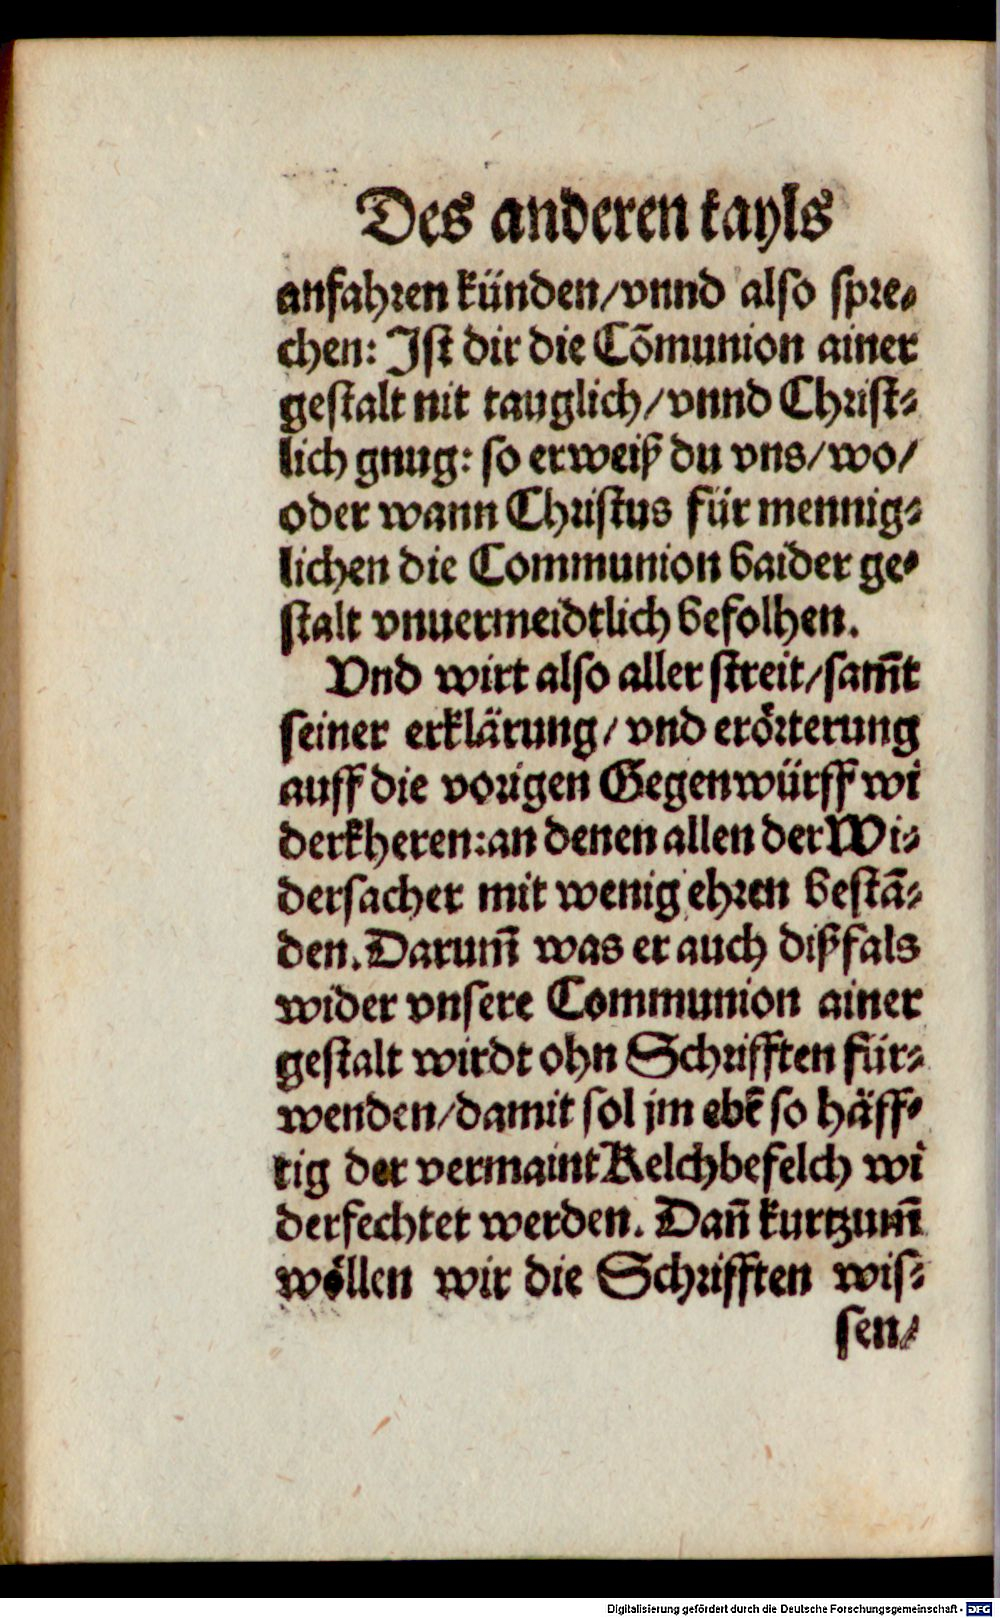 Des anderen tayls
anfahren künden/vnnd also spre-
chen: Ist dir die Cōmunion ainer
gestalt nit tauglich/vnnd Christ-
lich gnug: so erweiß du vns/wo/
oder wann Christus für mennig-
lichen die Communion baider ge-
stalt vnuermeidtlich befolhen.
Vnd wirt also aller streit/sam̄t
seiner erklärung/vnd erörterung
auff die vorigen Gegenwürff wi
derkheren:an denen allen der Wi-
dersacher mit wenig ehren bestā-
den. Darum̄ was er auch dißfals
wider vnsere Communion ainer
gestalt wirdt ohn Schrifften für-
wenden/damit sol jm ebē so häff-
tig der vermaint Kelchbefelch wi
derfechtet werden. Dan̄ kurtzum̄
wöllen wir die Schrifften wis-
sen/
Digitalisierung gefördert durch die Deutsche Forschungsgemeinschaft - DFG